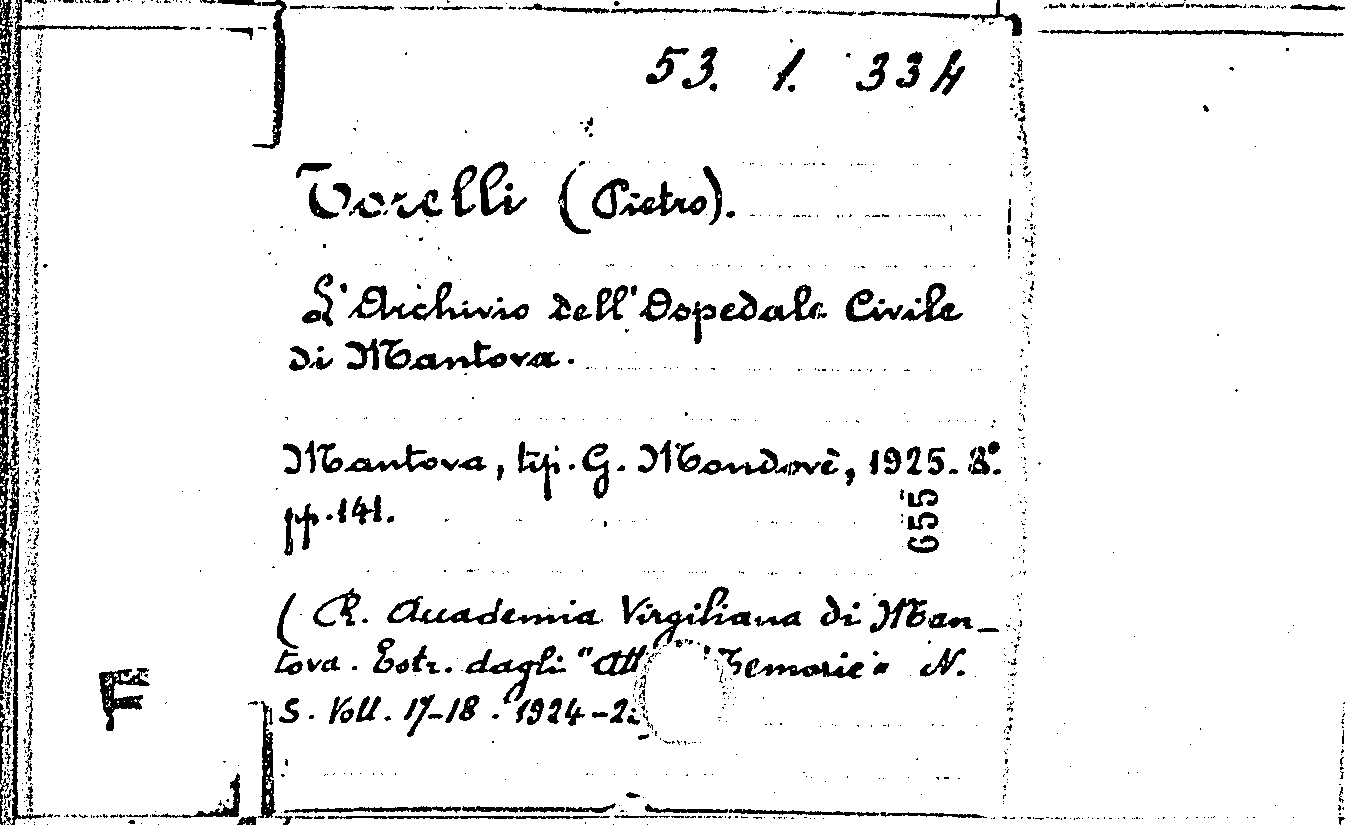 53. 1. 334
Torelli (Pietro).
L'Archivio dell'Ospedale Civile
di Mantova.
Mantova, tip. G. Mondovì, 1925. 8°.
pp. 141.
655
( R. Accademia Virgiliana di Man_
tova. Estr. dagli "Atti Memorie" N.
S. Voll. 17-18. 1924-25
F